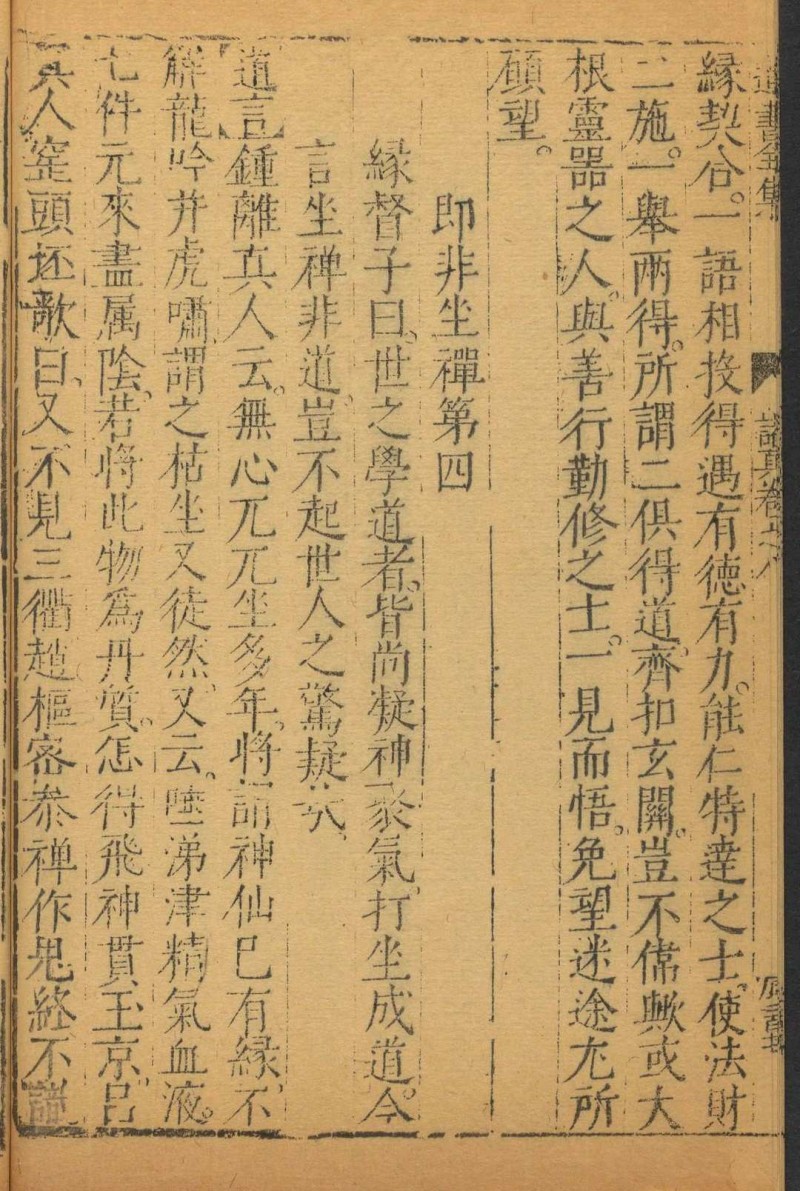 道書全集 卷之八
緣契合。一語相投得遇有德有力。能仁特達之士。使法財
二施。一舉兩得。所謂二俱得道齊扣玄關。豈不偉歟或大
根靈器之人。與善行勤修之士。一見而悟。免望迷途尤所
願望。
即非坐禪第四
緣督子曰。世之學道者。皆尚凝神聚氣。打坐成道。今
言坐禅非道。豈不起世人之驚疑哉。
道言鍾離真人云。無心兀兀坐多年。將謂神仙已有緣。不
解龍吟并虎嘯。謂之枯坐又徒然。又云。唾涕津精氣血液。
七件元來盡属陰。若將此物爲丹質。怎得飛神貫玉京。呂
真人窑頭坯歌曰。又不見三衢趙樞密叅禅作鬼終不